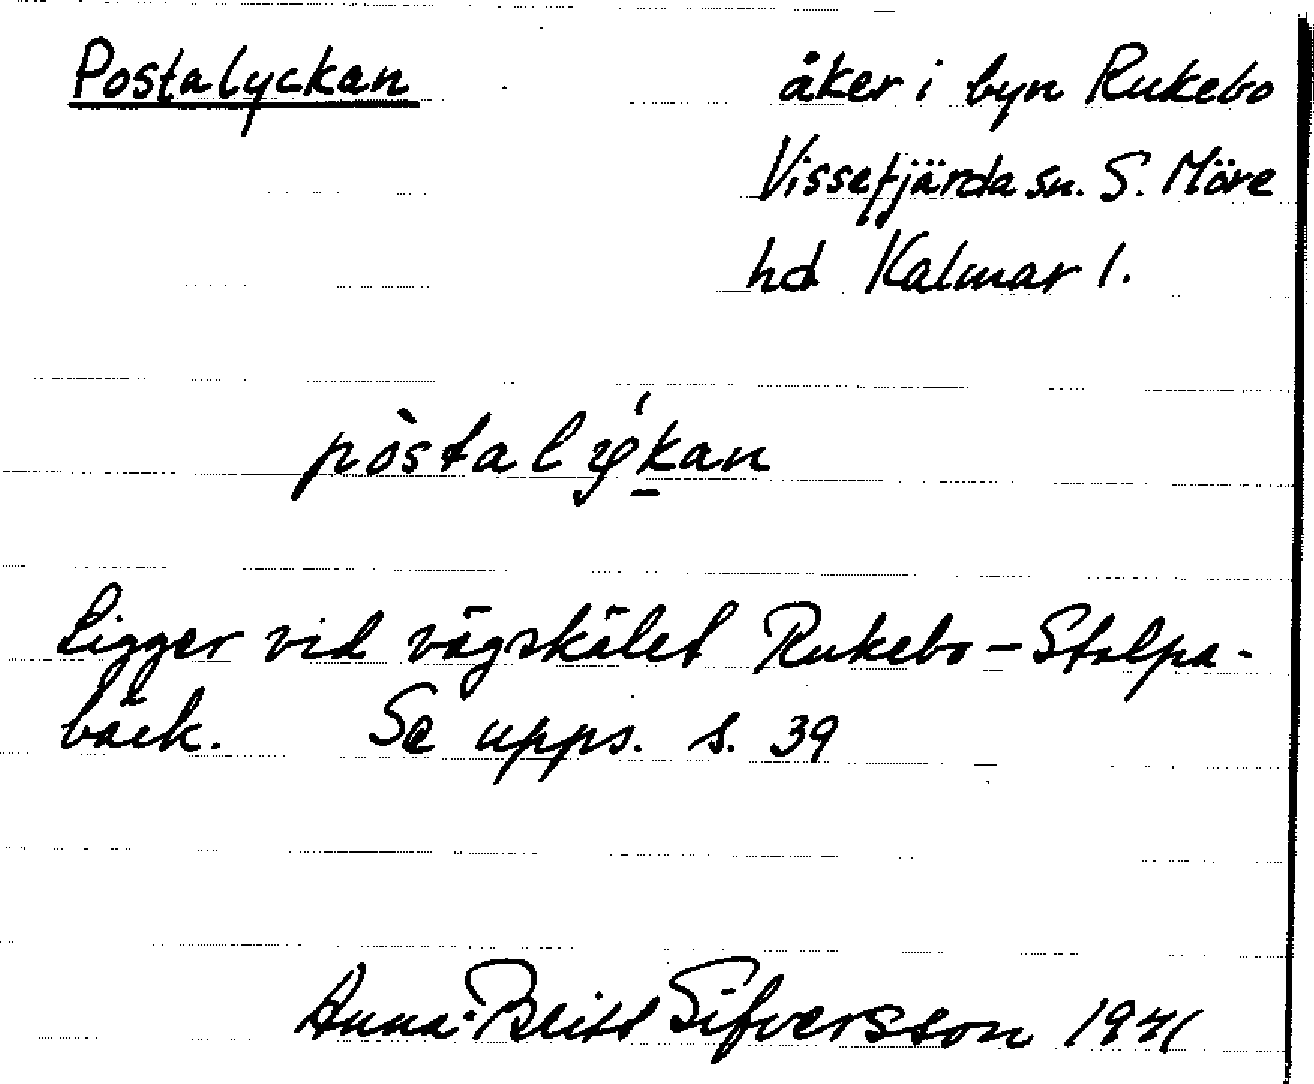 Postalyckan
åker i byn Rukebo
Vissefjärda sn. S. Möre
hd Kalmar l.
pòstalýkan
Ligger vid vägskälet Rukebo-Stolpa-
bäck. Se upps. s. 39
Anna-Britt Sifversson 1941